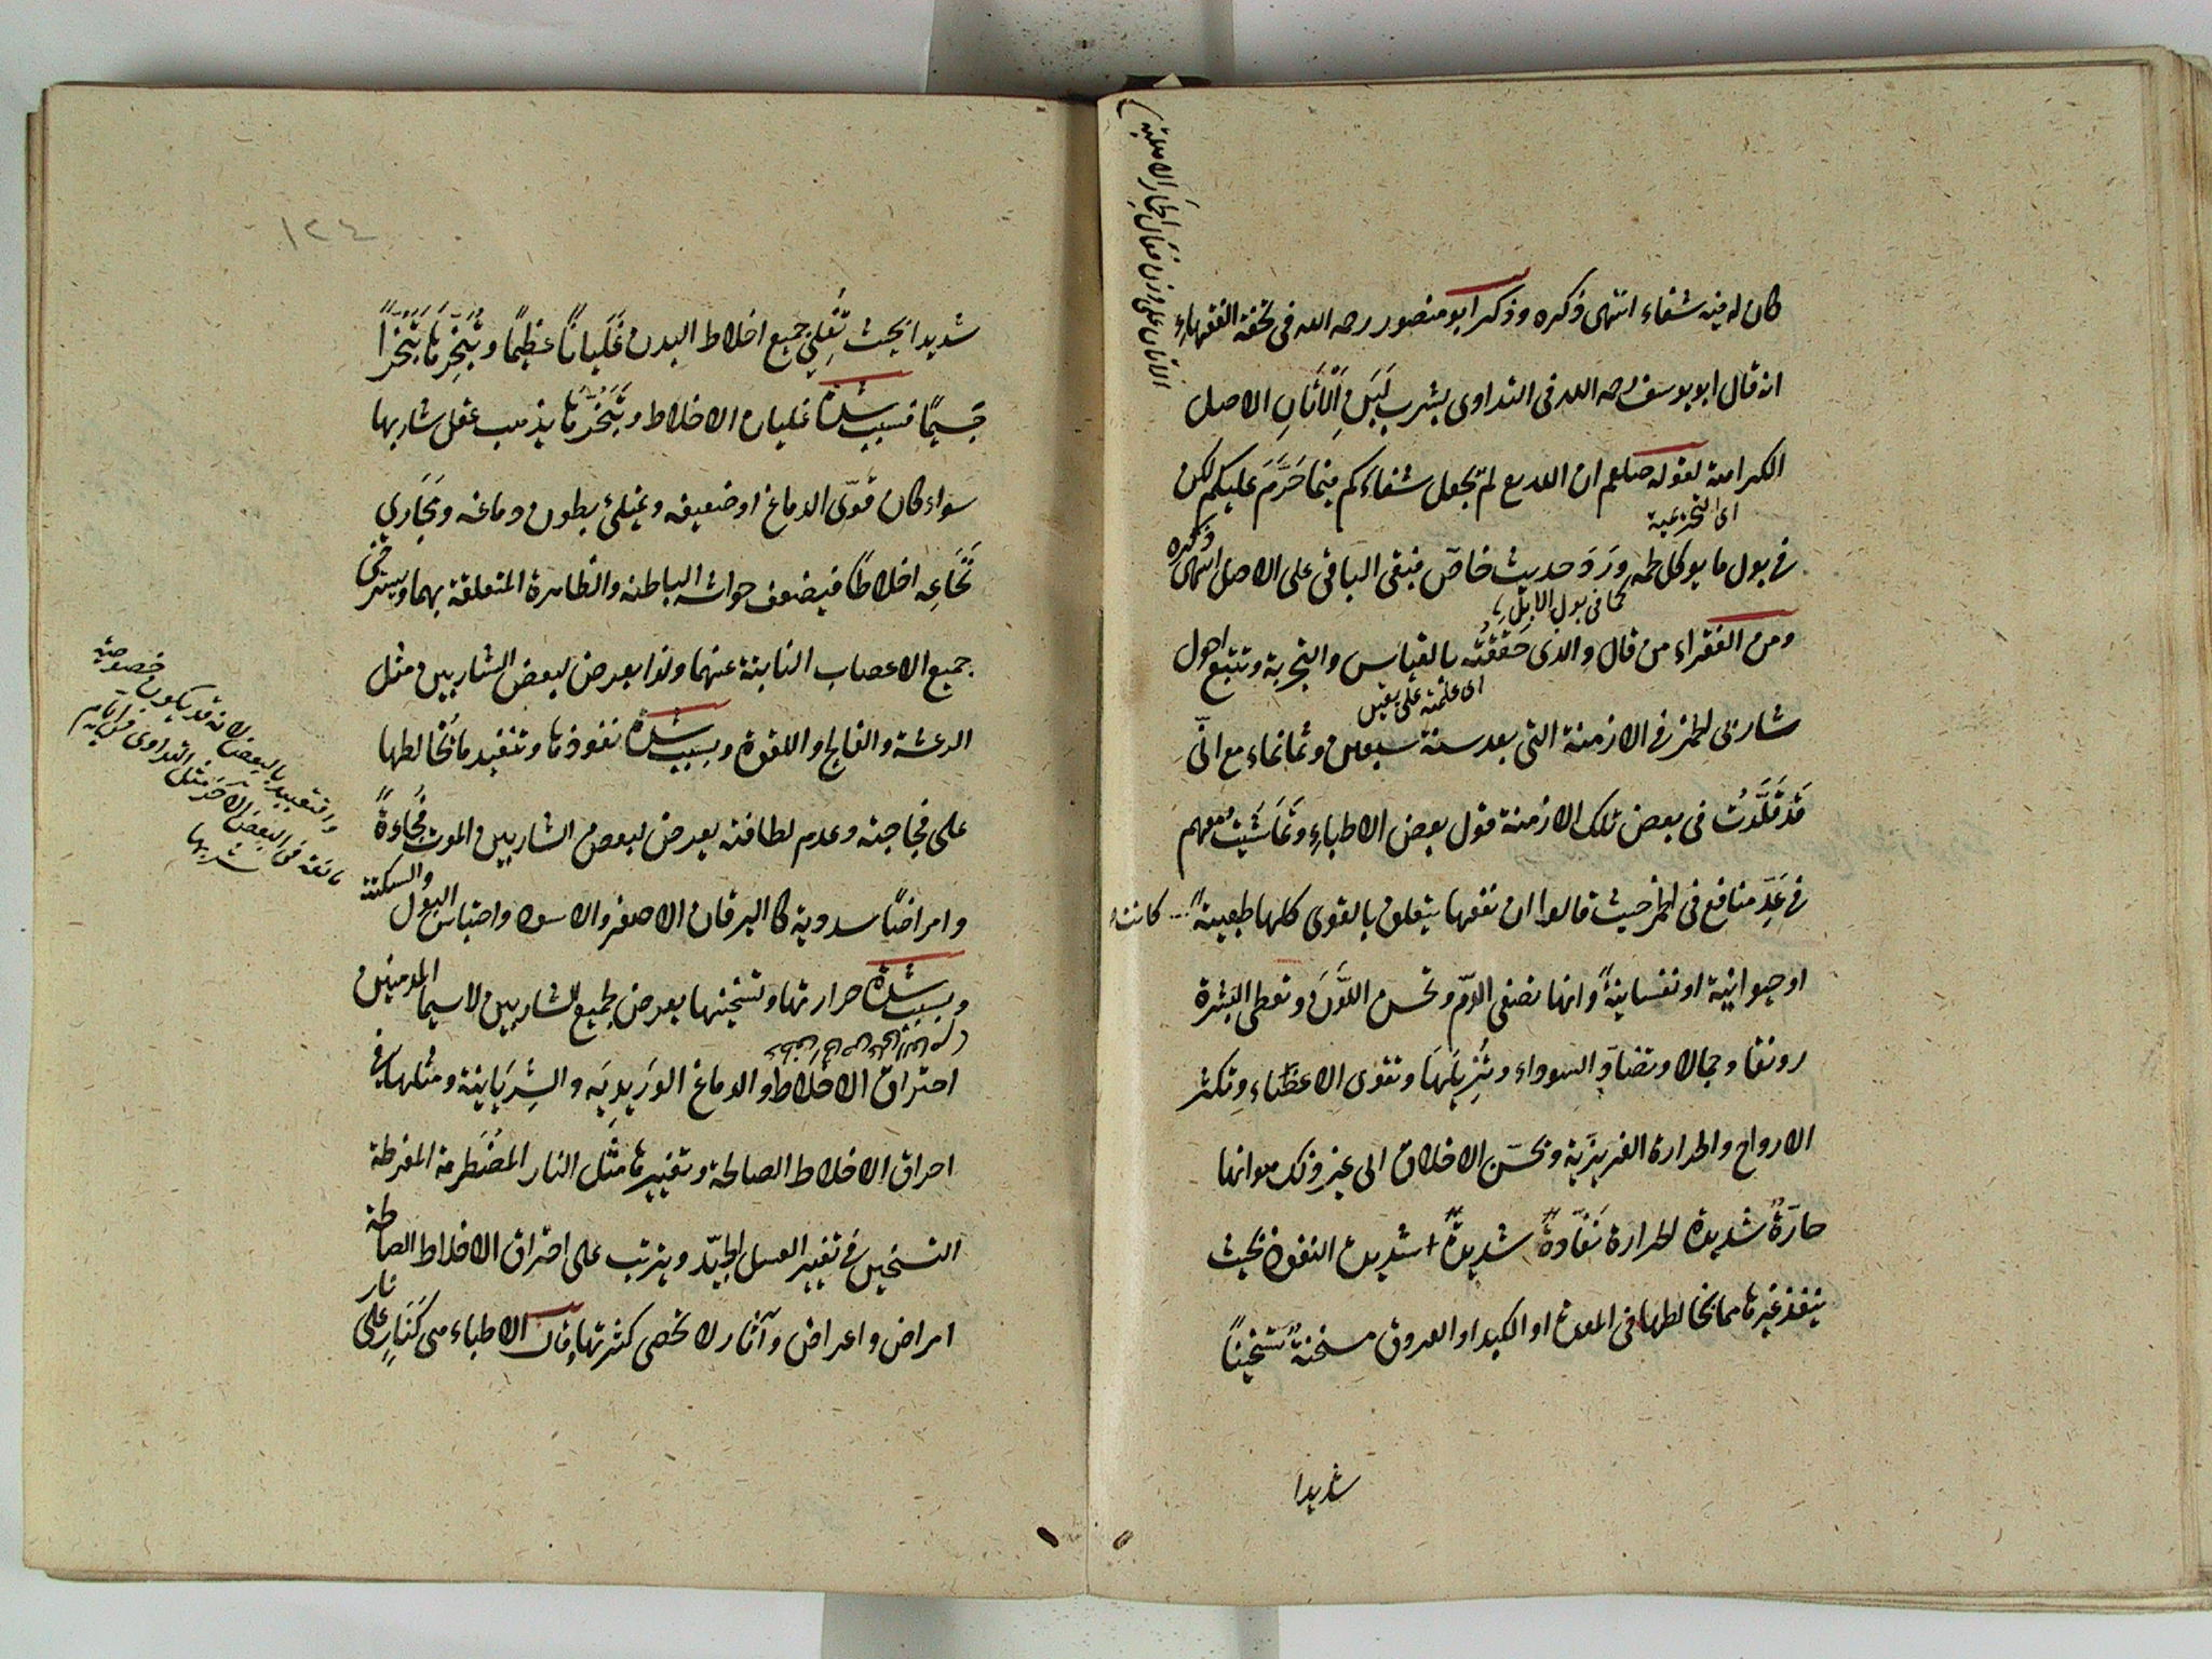 كان له فيه شفاء انتهى ذكره وذكر ابو منصور رحمه الله في تحفة الفقهاء
انه قال ابو يوسف رحمه الله في التداوى بشرب لَبَنِ الْاَتَانِ الاصل
الكراهة لقوله صلعم ان الله تع لم يجعل شفاءكم فيما حَرَّمَ عليكم لكن
اى التحريمية
في بول ما يوكل لحمه وَرَدَ حديث خاصّ فبقى الباقى على الاصل انتهى ذكره
كما في بول الابل
ومن الفقراء من قال والذى حَقَقْتُه بالقياس والتجربة وتتبع احول
اى علمته على يقين
شاربى الخمر في الازمنة التى بعد سنة سبعين وثمانماء مع انّى
قَدْ قَلَّدْتُ في بعض تلك الازمنة قول بعض الاطباءِ وتَمَاشَيْتُ معهم
في عَدِّ منافع في الخمر حيث قالوا ان نفعها يتعلق بالقوى كلها طبعية كانت
او حيوانية او نفسانيةً وانها تصفى الدّم وتحسن اللَّوْنَ وتعطى البشرة
رونقا وجمالا وتضادّ السوداء وتُزِيلُهَا وتقوى الاعضاء وتكثر
الارواح والحرارة الغريزيّة وتحسّن الاخلاق الى غير ذلك هو انها
حارّةٌ شديدة الحرارة نَفّاذةٌ شديدةٌ شديدة النفوذ بحيث
ينفذ غيرها مما يخالطها في المعدة او الكبد او العروق مسخنةٌ تسخينًا
شديدا
الاتان على وزن فَعَال الحمار الاهلية
١٢٤
شديدا بحيث تُغْلِي جميع اخلاط البدن غَلَيَانًا عظيمًا وتُبَخِّرُها تَبَخُّرًا
جَسِيمًا فبسبب شدة غليان الاخلاط وتَبَخُّرِها يذهب عقل شاربها
سواء كان قوّى الدماغ او ضعيفه ويمتلئ بطون دماغه ومَجَاري
نُخَاعِه اخلاطًا فيضعف حواسّه الباطنة والظاهرة المتعلقة بهما ويسترخى
جميع الاعصاب النابتة عنهما ولذا يعرض لبعض الشاربين مثل
الرعشة والفالج او اللقوة وبسبب شدة نفوذها وتنفيذ ما يُخالطها
على فجاجته وعدم لطافته يعرض لبعض الشاربين الموت فُجَاءةً
والسكتة
وامراضًا سدوية كاليرقان الاصفر والاسود واحتباس البول
وبسبب شدة حرارتها وتسخينها يعرض لجميع الشاربين لاسيما المدمنين
احتراق الاخلاط والدماغ الوَرِيدِيّه والشِرْيَانِيّة ومثلها في
احراق الاخلاط الصالحة وتغييرها مثل النار المُضْطَرِمة المفرطة
التسخين في تغيير العسل الجيّد ويترتب على احتراق الاخلاط الصالحة
امراض واعراض وآثار لا تحصى كثرتها فان الاطباء هى كَنَارٍ على نار
والتقييد بالبعض لانه قد يكون خصوصية
في البعض الآخر مثل التداوى
مانعة في البعض شربها